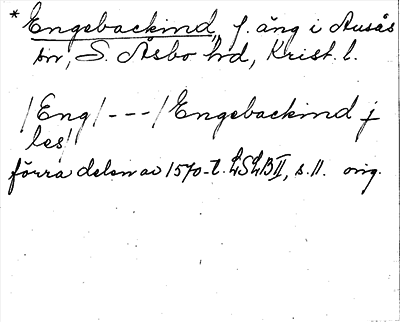 * Engebackind, f. äng i Ausås
sn, S. Åsbo hd, Krist. l.
/Eng/ - - - /Engebackind j
les/
förra delen av 1570-t. LSLB II, s. 11. orig.